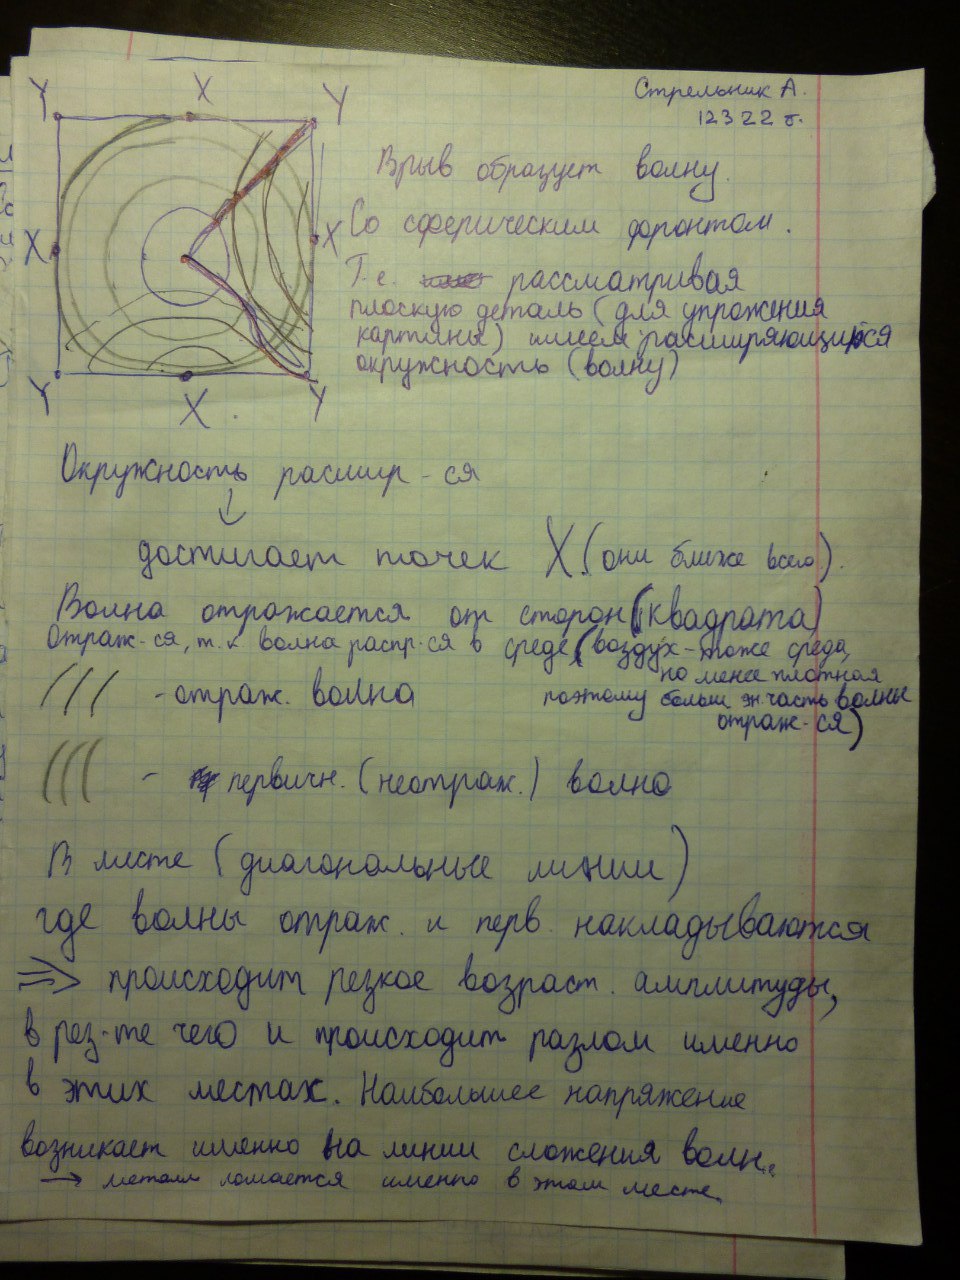 Стрельник А.
12322 г.
Y X Y
Взрыв образует волну.
X X
Со сферическим фронтом.
Т.е. рассматривая
плоскую деталь (для упрожения
картины) имеем расширяющуюся
окружность (волну)
Y X Y
Окружность расшир-ся
↓
достигает точек X (они ближе всего).
Волна отражается от сторон (квадрата)
Отраж-ся, т.к волна распр-ся в среде (воздух - тоже среда,
но менее плотная
поэтому больш часть волны
отраж-ся)
/// - отраж. волна
((( - первичн. (неотраж.) волна
В месте (диагональные линии)
где волны отраж. и перв. накладываются
=> происходит резкое возраст. амплитуды,
в рез-те чего и происходит разлом именно
в этих местах. Наибольшее напряжение
возникает именно на линии сложения волн.
→ металл ломается именно в этом месте.